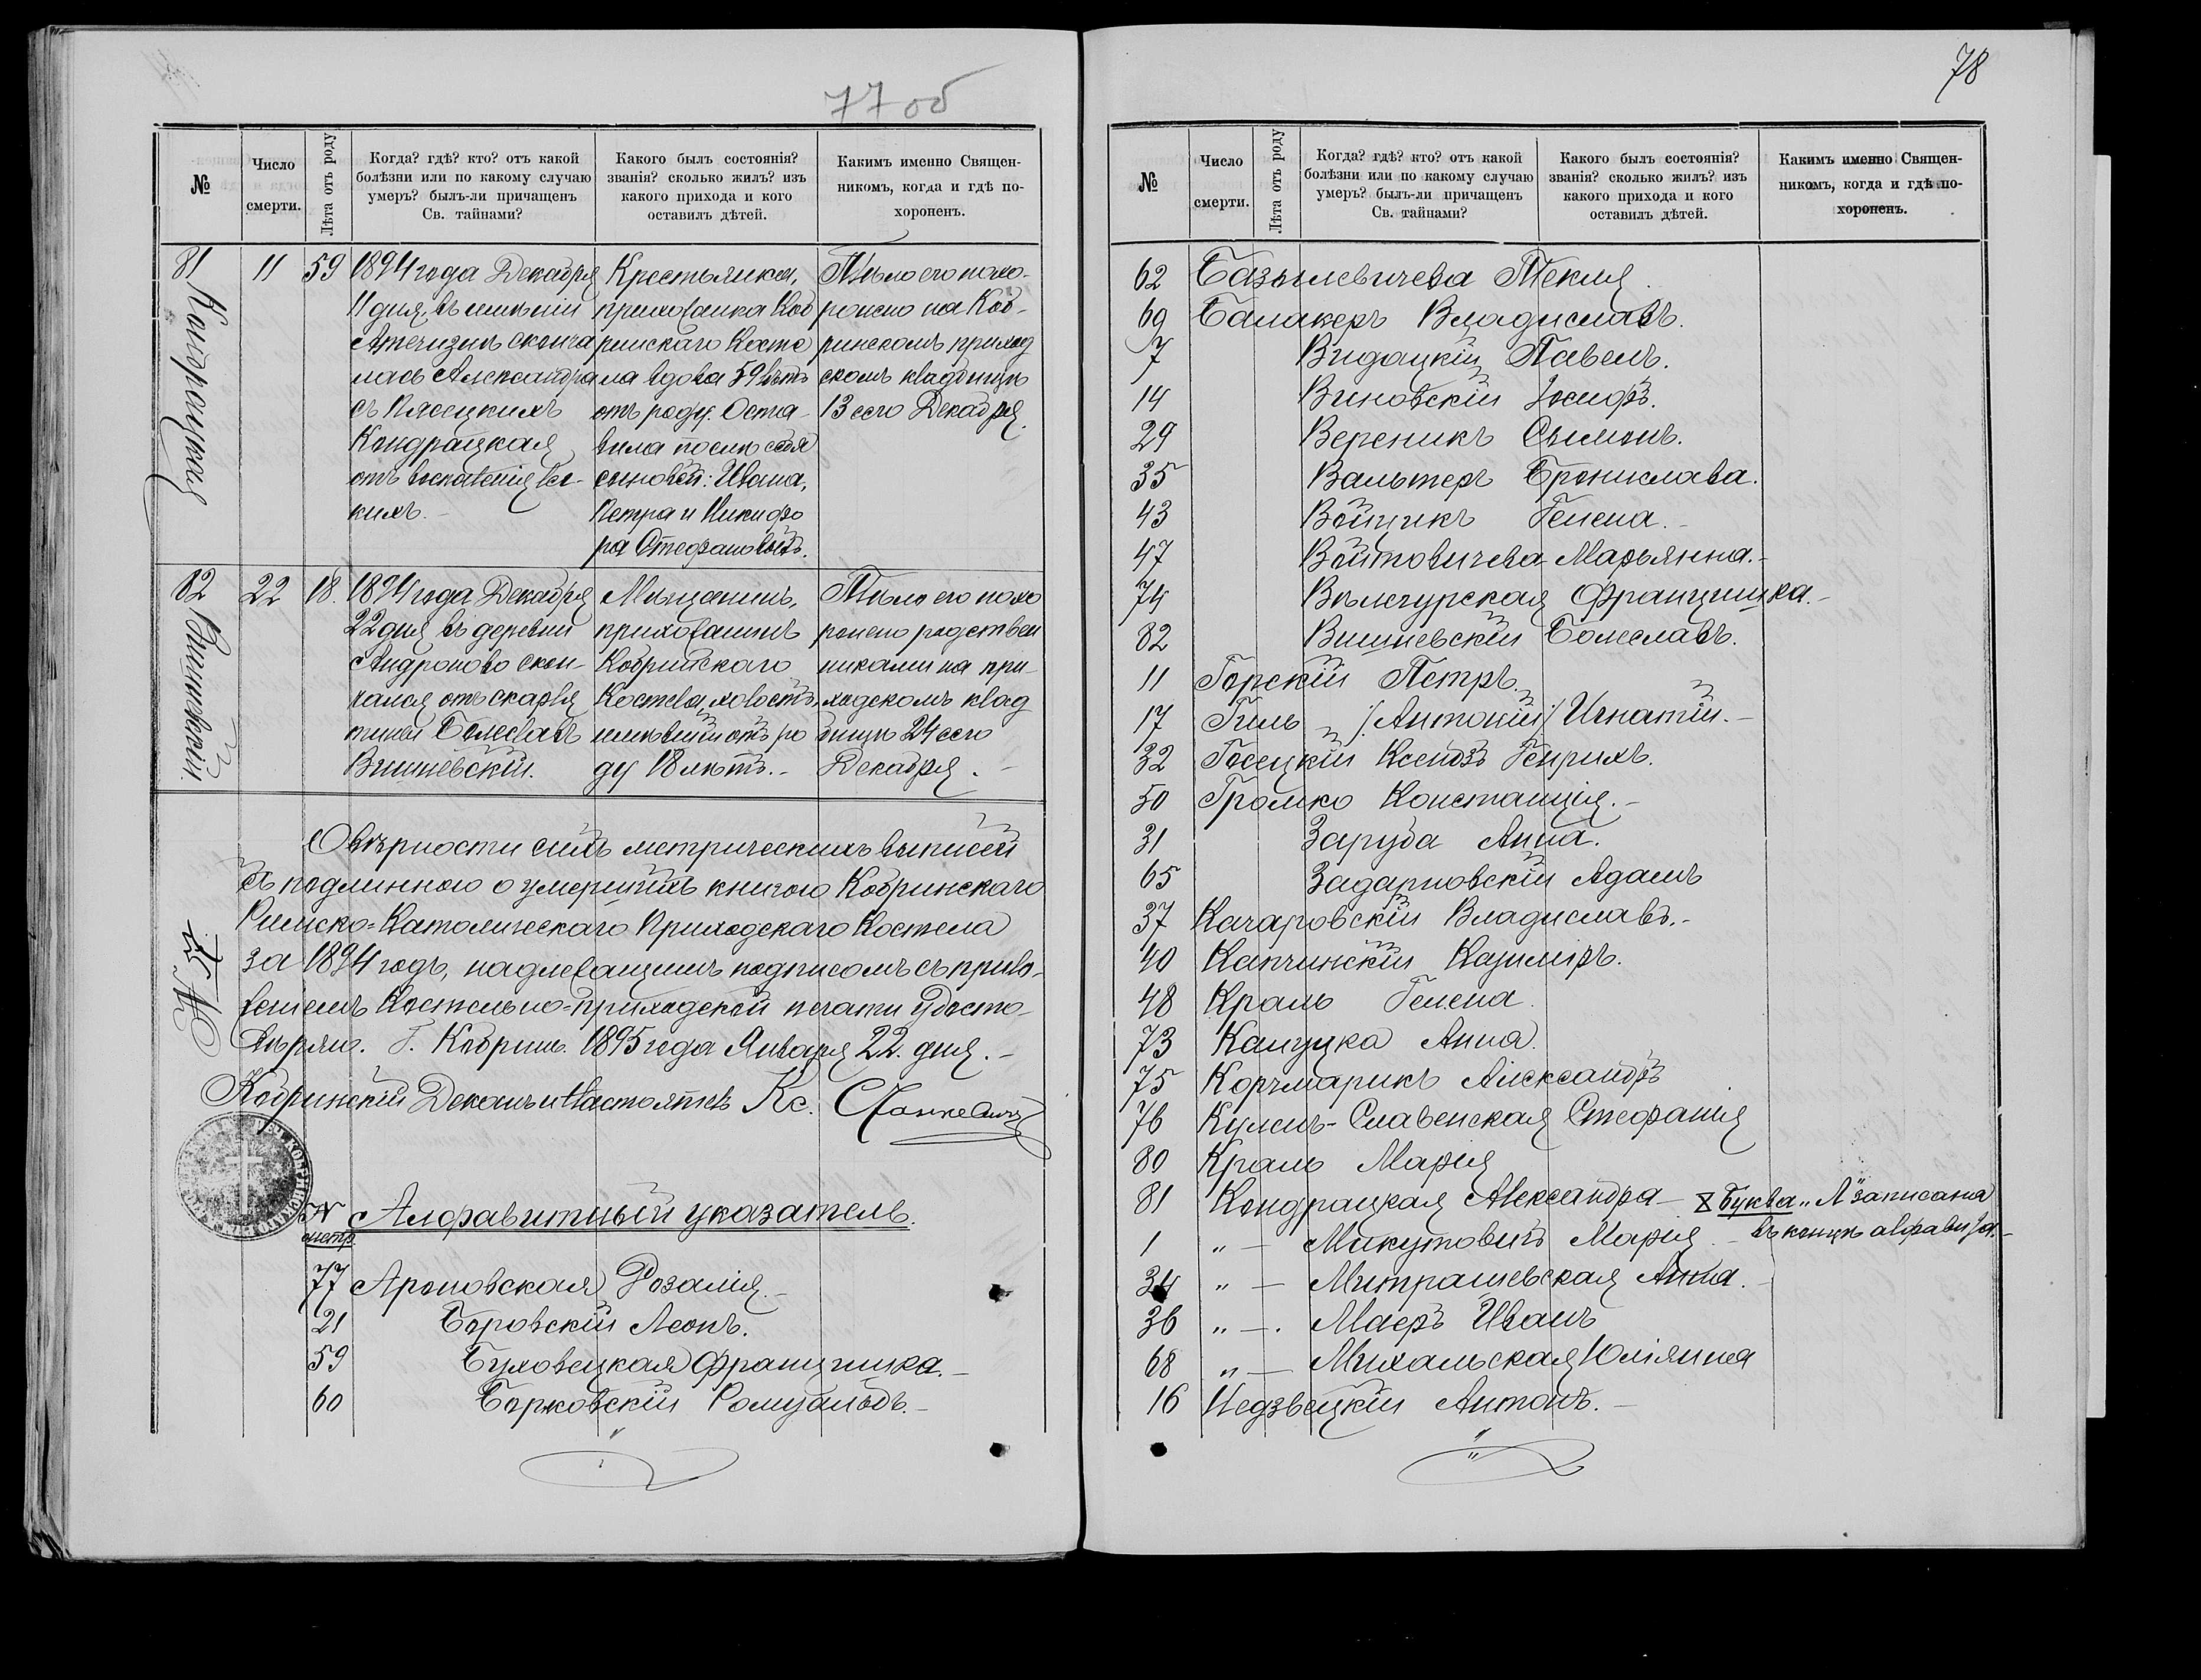 77 об
№
Число смерти.
Лѣта отъ роду
Когда? гдѣ? кто? отъ какой болѣзни или по какому случаю умеръ? былъ-ли причащенъ Св. тайнами?
Какого былъ состоянія? званія? сколько жилъ? изъ какого прихода и кого оставилъ дѣтей.
Какимъ именно Священникомъ, когда и гдѣ похороненъ.
81
Кондрацкая
11
59
1894 года Декабря
11 дня въ имѣніи
сконча
лась Александра
съ Пясецкихъ
Кондрацкая
отъ воспаленія лег-
кихъ.
Крестьянка,
прихожанка Коб
ринскаго Косте
ла вдова 59 лѣтъ
отъ роду. Оста-
вила послѣ себя
сыновей: Ивана,
Петра и Никифо
ра Стефановыхъ.
Тѣло его похо-
ронено на Коб-
ринскомъ приход
скомъ кладбищѣ
13 сего Декабря.
82
Вишневскій.
22
18.
1894 года Декабря
22 дня въ деревни
Андроново скон-
чался отъ скарля
тины Болеславъ
Вишневскій.
Мѣщанинъ,
прихожанинъ
Кобринскаго
Костела, холостъ,
имѣвшій отъ ро
ду 18 лѣтъ.-
Тѣло его похо
ронено родствен
никами на при-
ходскомъ клад
бищѣ 24 сего
Декабря.-
О вѣрности сихъ метрическихъ выписей
съ подлинною о умершихъ книгою Кобринскаго
Римско-Католическаго Приходскаго Костела
за 1894 годъ, надлежащимъ подписомъ съ прило-
женіемъ Костельно-приходской печати удосто-
вѣряю. Г. Кобринъ. 1895 года Января 22. дня.-
Кобринскій Деканъ и Настоятель Кс.
№ 25
№ метр.
Алфавитный указатель.
77 Ароновская Розалія.-
21 Боровскій Леонъ.
59 Буховецкая Францишка.-
60 Борковскій Ромуальдъ.-
78
№
Число смерти.
Лѣта отъ роду
Когда? гдѣ? кто? отъ какой болѣзни или по какому случаю умеръ? былъ-ли причащенъ Св. тайнами?
Какого былъ состоянія? званія? сколько жилъ? изъ какого прихода и кого оставилъ дѣтей.
Какимъ именно Священникомъ, когда и гдѣ похороненъ.
62 Базылевичева Текля.
69 Балакеръ Владиславъ.
7 Видацкій Павелъ.
14 Виновскій Іосифъ.
29 Вереникъ Сымонъ.
35 Вальтеръ Брониславa.
43 Войцикъ Гелена.-
47 Войтовичева Марьянна.-
74 Вѣлгурская Францишка.-
82 Вишневскій Болеславъ.
11 Горскій Петръ.
17 Гиль „ /:Антоній:/ Игнатій.-
32 Госецкій Ксендзъ Генрихъ.
50 Громко Констанція.-
31 Заруба Анна.
65 Задарновскій Адамъ
37 Качаровскій Владиславъ.-
40 Капчинскій Казиміръ.
48 Краль Гелена.
73 Калуцка Анна.
75 Корчмарикъ Александръ
76 Славенская Стефанія
80 Краль Марія
81 Кондрацкая Александра - Буква „Л" записана
въ концѣ алфавита.-
1 „ — Микутовичъ Марія.-
34 „ — Митрашевская Анна.-
36 „ —. Маеръ Иванъ
68 „ — Михальская Юліянна
16 Недзвецкій Антонъ.-